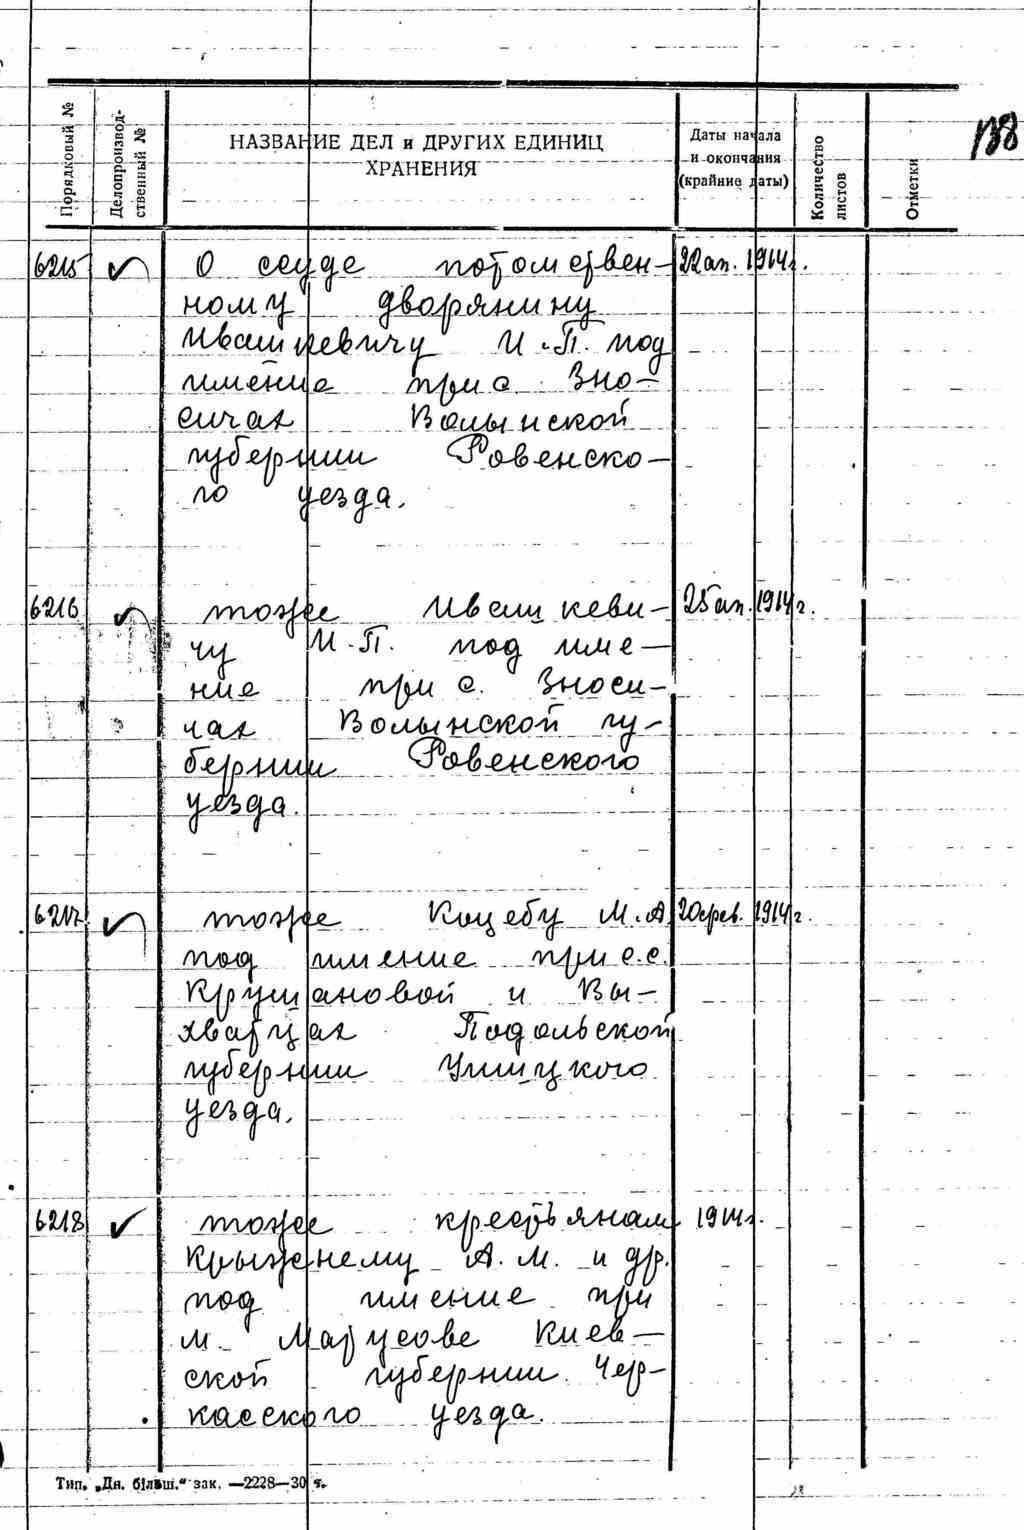 138
Порядковый №
Делопроизвод-
ственный №
НАЗВАНИЕ ДЕЛ и ДРУГИХ ЕДИНИЦ
ХРАНЕНИЯ
Даты начала
и окончания
(крайние даты)
Количество
листов
Отметки
6215 О ссуде потомствен- 22 ап. 1914 г.
ному дворянину
Ивашкевичу И.П. под
имение при с. Зно-
сичах Волынской
губернии Ровенско-
го уезда.
6216 тоже Ивашкеви- 25 ап. 1914 г.
чу И.П. под име-
ние при с. Зноси-
чах Волынской гу-
бернии Ровенского
уезда.
6217 тоже Коцебу М.А. 20 фев. 1914 г.
под имение при с.с.
Крушановой и Вы-
хватцах Подольской
губернии Ушицкого
уезда.
6218 тоже крестьянам 1914 г.
Крыжнему А.М. и др.
под имение при
м. Марусове Киев-
ской губернии Чер-
касского уезда.
Тип. „Дн. більш." зак. —2228—30 т.